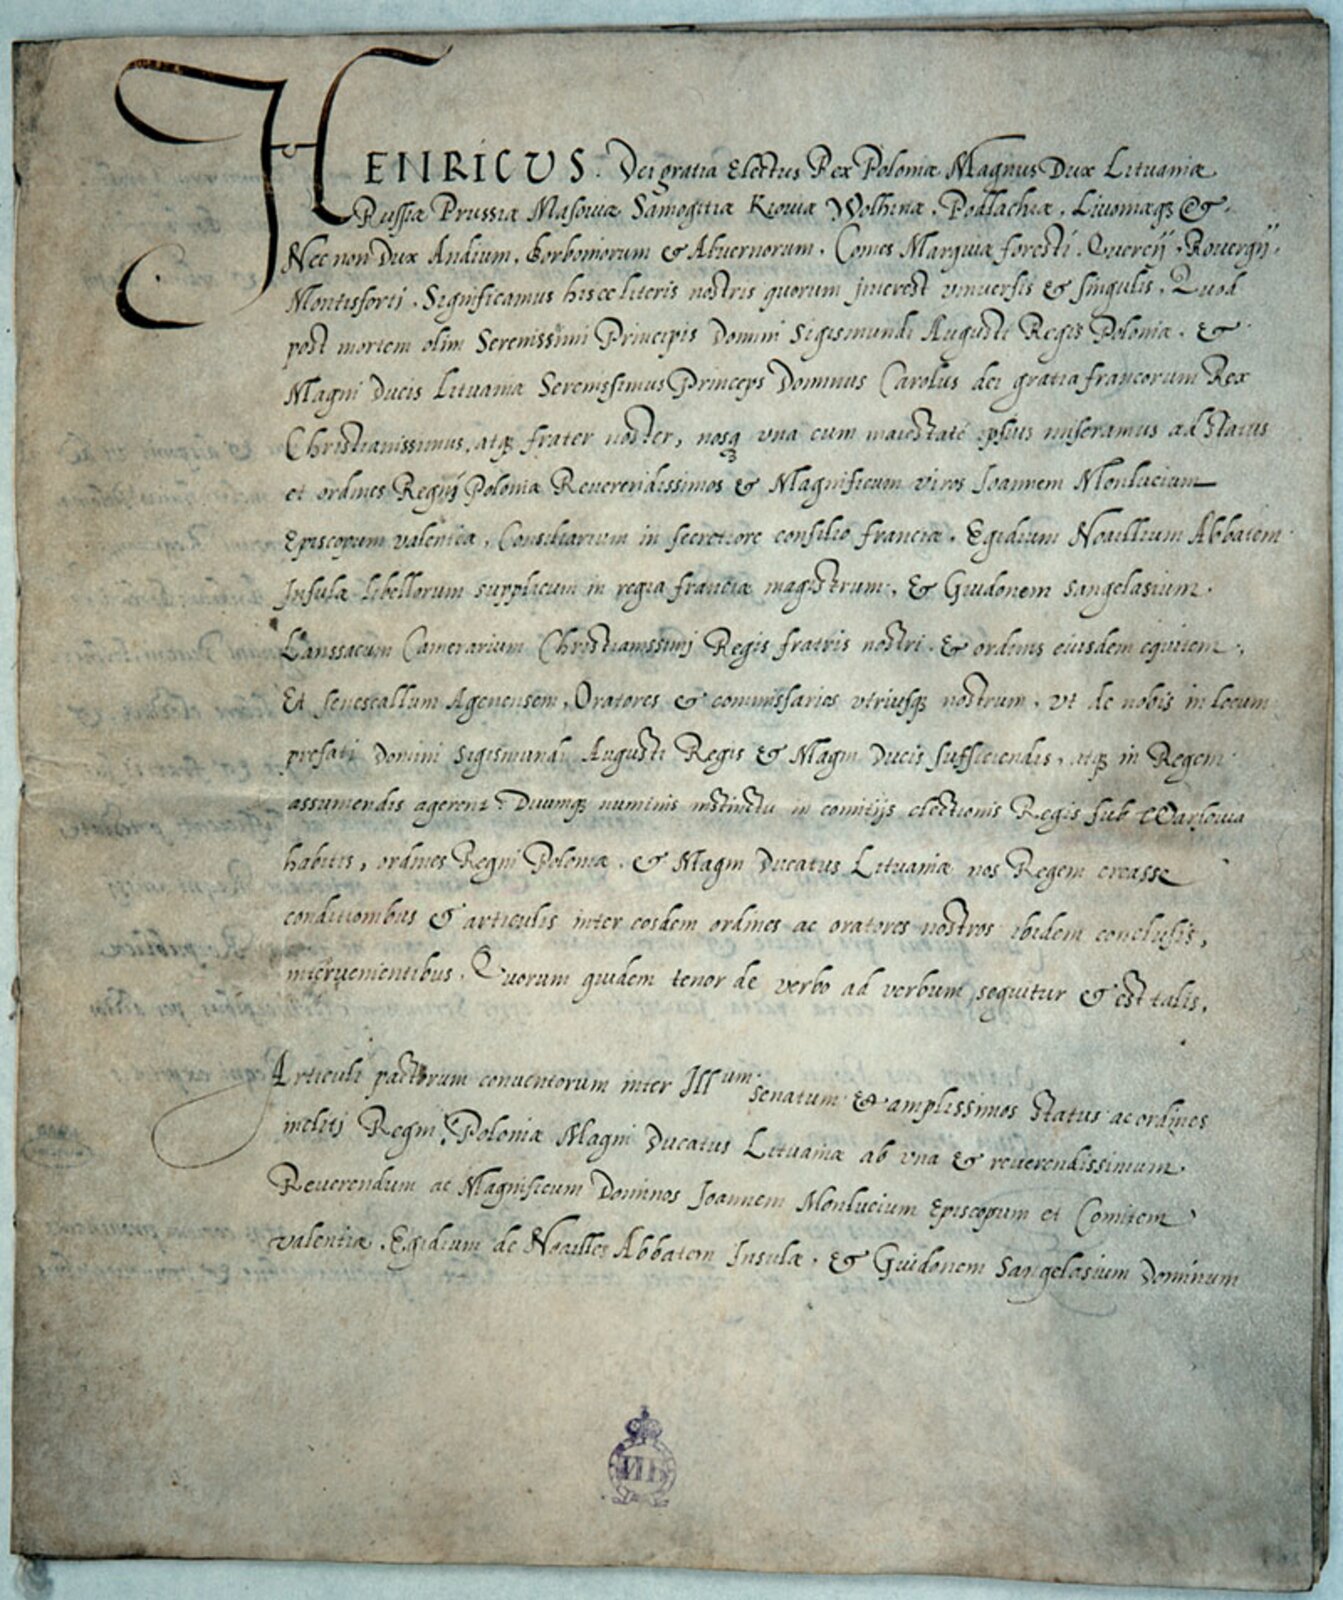 HENRICUS. Dei gratia Electus Rex Poloniæ Magnus Dux Lituaniæ
Russiæ Prussiæ Masoviæ Samogitiæ Kioviæ Wolhiniæ. Podlachiæ. Livoniæq3 &.
Nec non Dux Andium. Borboniorum & Alvernorum. Comes Marquiæ foresti. Quercij. Rovergij.
Montisforti. Significamus hisce literis nostris quorum interest vniversis & singulis. Quod
post mortem olim Serenissimi Principis Domini Sigismundi Augusti Regis Poloniæ. &
Magni Ducis Lituaniæ Serenissimus Princeps Dominus Carolus dei gratia francorum Rex
Christianissimus, atq3 frater noster, nosq3 vna cum maiestate ipsius miseramus ad status
et ordines Regni Poloniæ Reverendissimos & Magnificum viros Ioannem Monlucium
Episcopum valentiæ. Consiliarium in secretiore consilio franciæ. Egidium Noaillium Abbatem
Insulæ libellorum supplicum in regia franciæ magistrum. & Guidonem Sangelasium.
Lanssacum Camerarium Christianissimi Regis fratris nostri. & ordinis eiusdem equitem.
Et senescallum Agenensem, Oratores & commissarios vtriusq3 nostrum. vt de nobis in locum
prefati Domini Sigismundi Augusti Regis & Magni Ducis sufficiendis, atq3 in Regem
assumendis agerent. Diuumq3 numinis instinctu in comitijs electionis Regis sub Warsovia
habitis, ordines Regni Poloniæ. & Magni Ducatus Lituaniæ nos Regem creasse
conditionibus & articulis inter eosdem ordines ac oratores nostros ibidem conclusis,
intervenientibus. Quorum quidem tenor de verbo ad verbum sequitur & est talis.
Articuli pactorum conventorum inter Illum. Senatum & amplissimos status ac ordines
incliti Regni Poloniæ Magni Ducatus Lituaniæ ab vna & reverendissimum
Reverendum ac Magnificum Dominos Ioannem Monlucium Episcopum et Comitem
valentiæ. Egidium de Noailles Abbatem Insulæ. & Guidonem Sangelasium Dominum